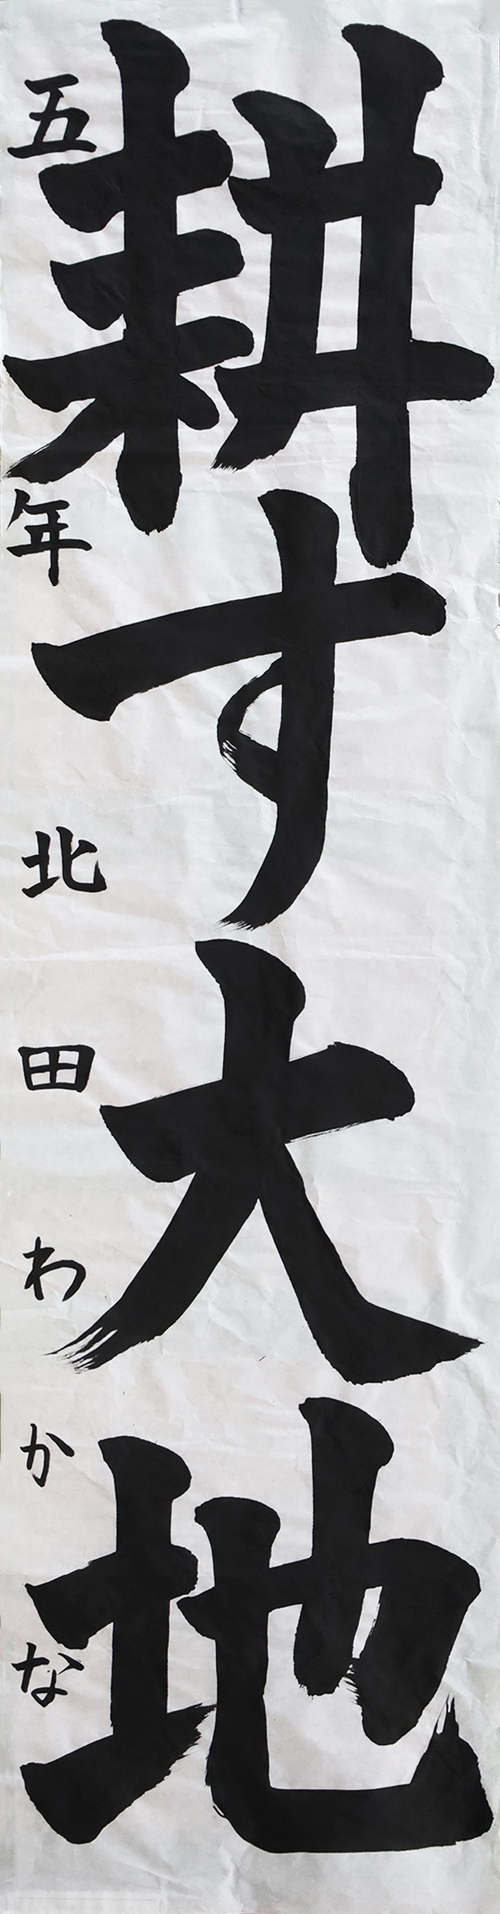 耕す大地
五年 北田わかな